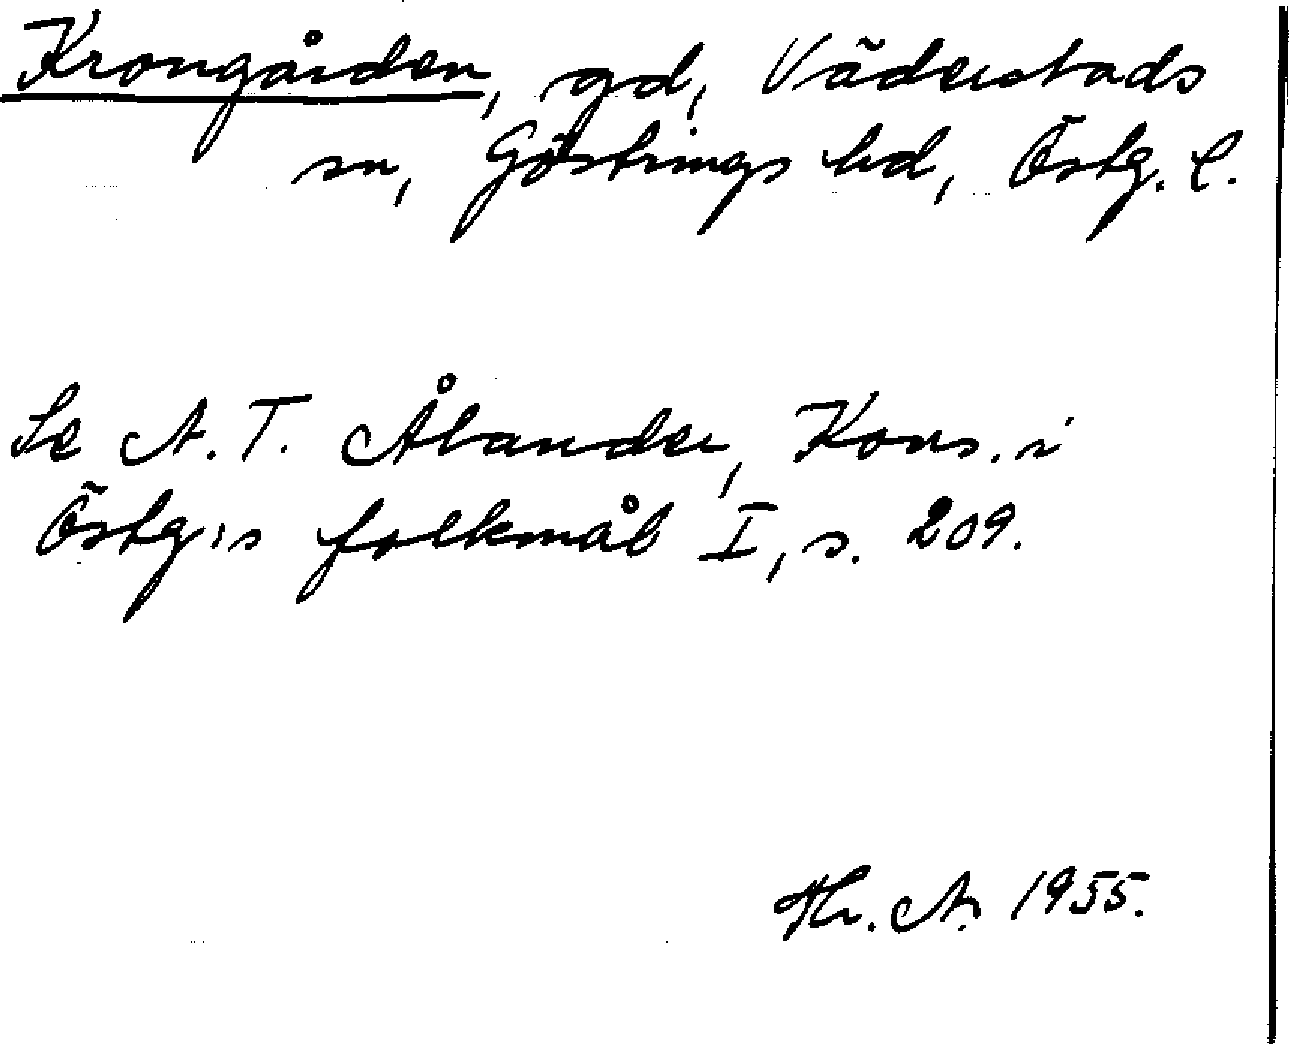 Krongården, gd, Väderstads
sn, Göstrings hd, Östg. l.
Se A. T. Ålander, Kons. i
Östg:s folkmål I, s. 209.
Hr. A. 1955.